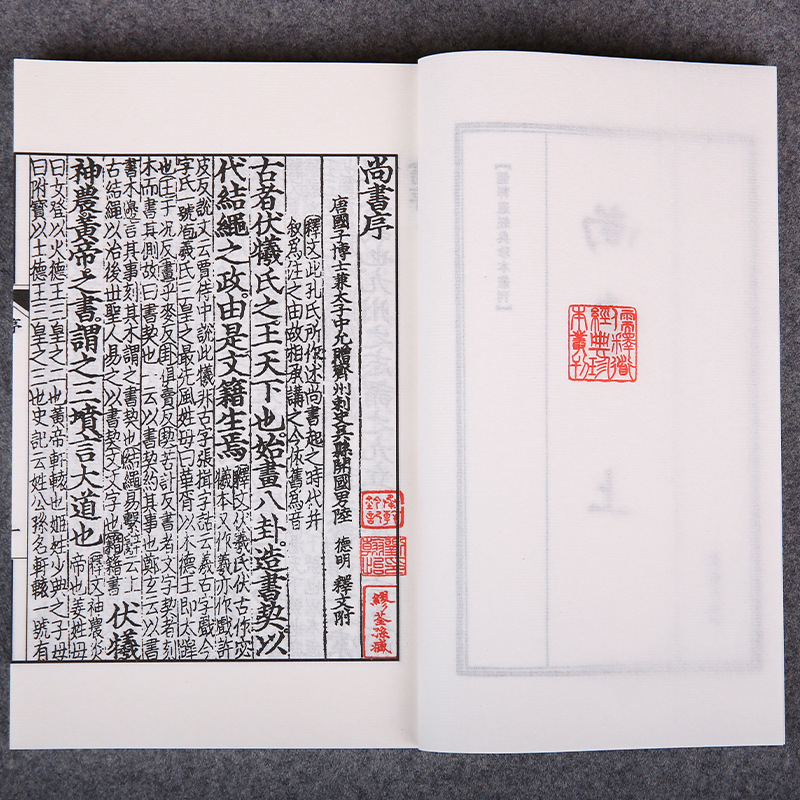 儒釋道
經典珍
本叢刊
上
尚書序
唐國子博士兼太子中允贈齊州刺史吳縣開國男陸 德明 釋文附
釋文此孔氏所作述尚書起之時代并
叙為注之由故相承講之今依舊為音
古者伏犧氏之王天下也始畫八卦造書契以
代結繩之政由是文籍生焉
釋文伏犧氏伏古作虙
犧本又作羲亦作戲許
皮反說文云賈侍中說此犧非古字張揖字詁云羲古字戲今
字氏一號包羲氏三皇之最先風姓母曰華胥以木德王即太皞
也王于况反畫乎麥反卦俱賣反契苦計反書者文字契者刻
木而書其側故曰書契也一云以書契約其事也鄭玄云以書
書木邊言其事刻其木謂之書契也結繩易繫辭云上
古結繩以治後世聖人易之以書契文文字也籍籍書
伏犧
神農黃帝之書謂之三墳言大道也
釋文神農炎
帝也姜姓母
曰女登以火德王三皇之二也黃帝軒轅也姬姓少典之子母
曰附寶以土德王三皇之三也史記云姓公孫名軒轅一號有
繆荃孫藏
序